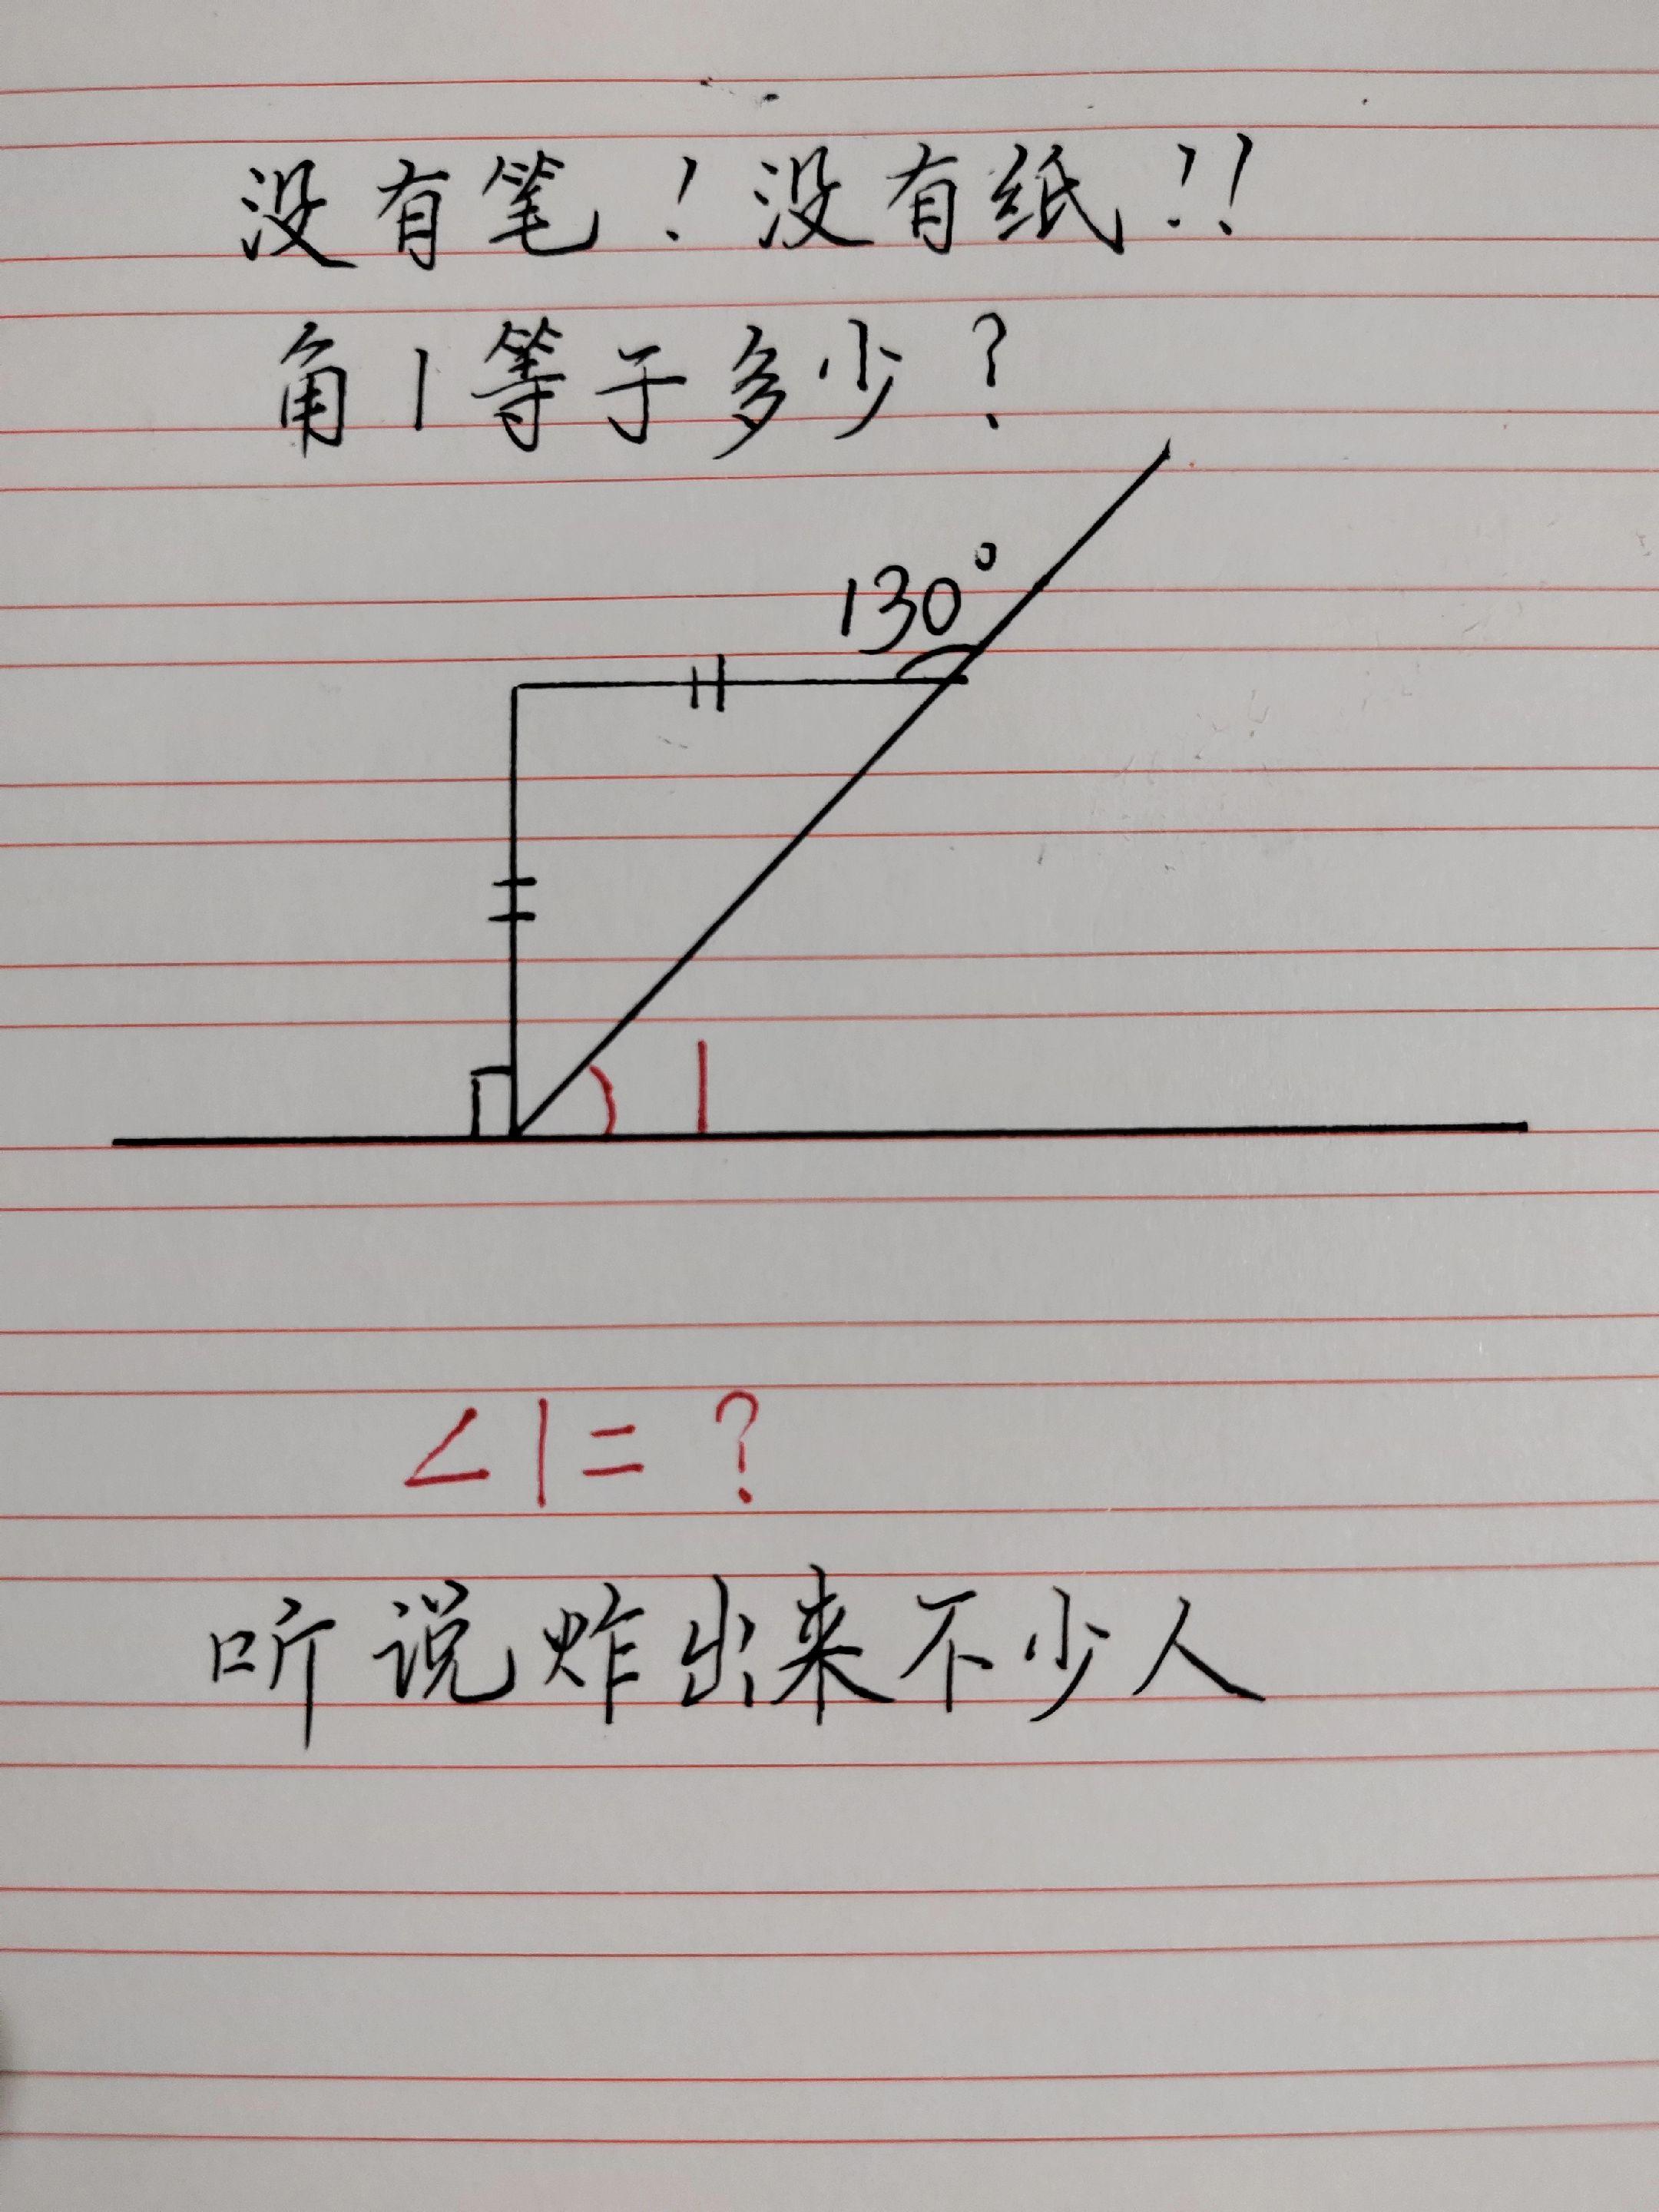 没有笔！没有纸！！
角1等于多少？
130°
1
∠1=？
听说炸出来不少人